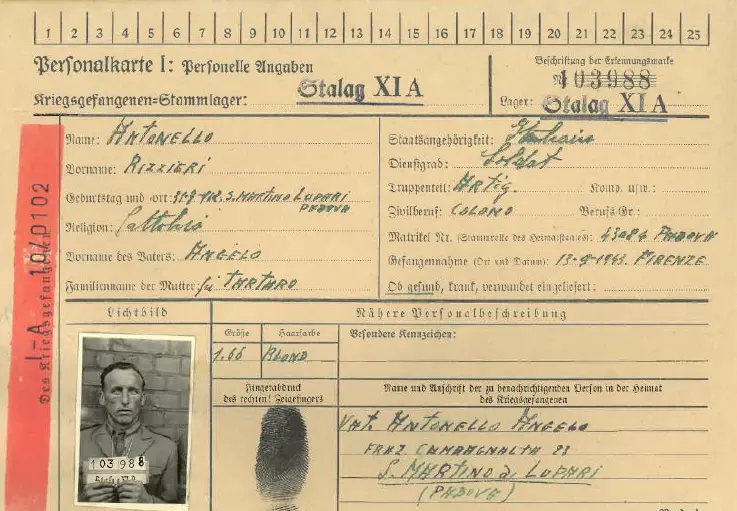 1 2 3 4 5 6 7 8 9 10 11 12 13 14 15 16 17 18 19 20 21 22 23 24 25
Personalkarte I: Personelle Angaben
Kriegsgefangenen=Stammlager: Stalag XI A
Beschriftung der Erkennungsmarke
Nr. 103988
Lager: Stalag XI A
Des Kriegsgefangenen
I-A 10/0102
Name: ANTONELLO
Vorname: RIZZIERI
Geburtstag und =ort: S. MARTINO LUPARI
PADOVA
Religion:
Vorname des Vaters: ANGELO
Familienname der Mutter: TARTARO
Staatsangehörigkeit: Italiana
Dienstgrad: Soldat
Truppenteil: Artig. Komp. usw.:
Zivilberuf: COLONO Berufs-Gr.:
Matrikel Nr. (Stammrolle des Heimatstaates): 43086 PADOVA
Gefangennahme (Ort und Datum): FIRENZE
Ob gesund, krank, verwundet eingeliefert:
Lichtbild
Nähere Personalbeschreibung
Größe Haarfarbe Besondere Kennzeichen:
1.66 BLOND
Fingerabdruck
des rechten! Zeigefingers
Name und Anschrift der zu benachrichtigenden Person in der Heimat
des Kriegsgefangenen
Vat. ANTONELLO ANGELO
FRAZ. CAMPAGNALTA 23
S. MARTINO di LUPARI
(PADOVA)
103988